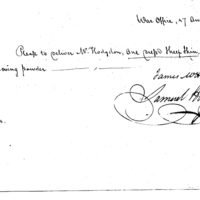 War Office, 27 Au
Please to deliver Mr. Hodgdon, one sheep skin,
powder
James McH
Samuel H